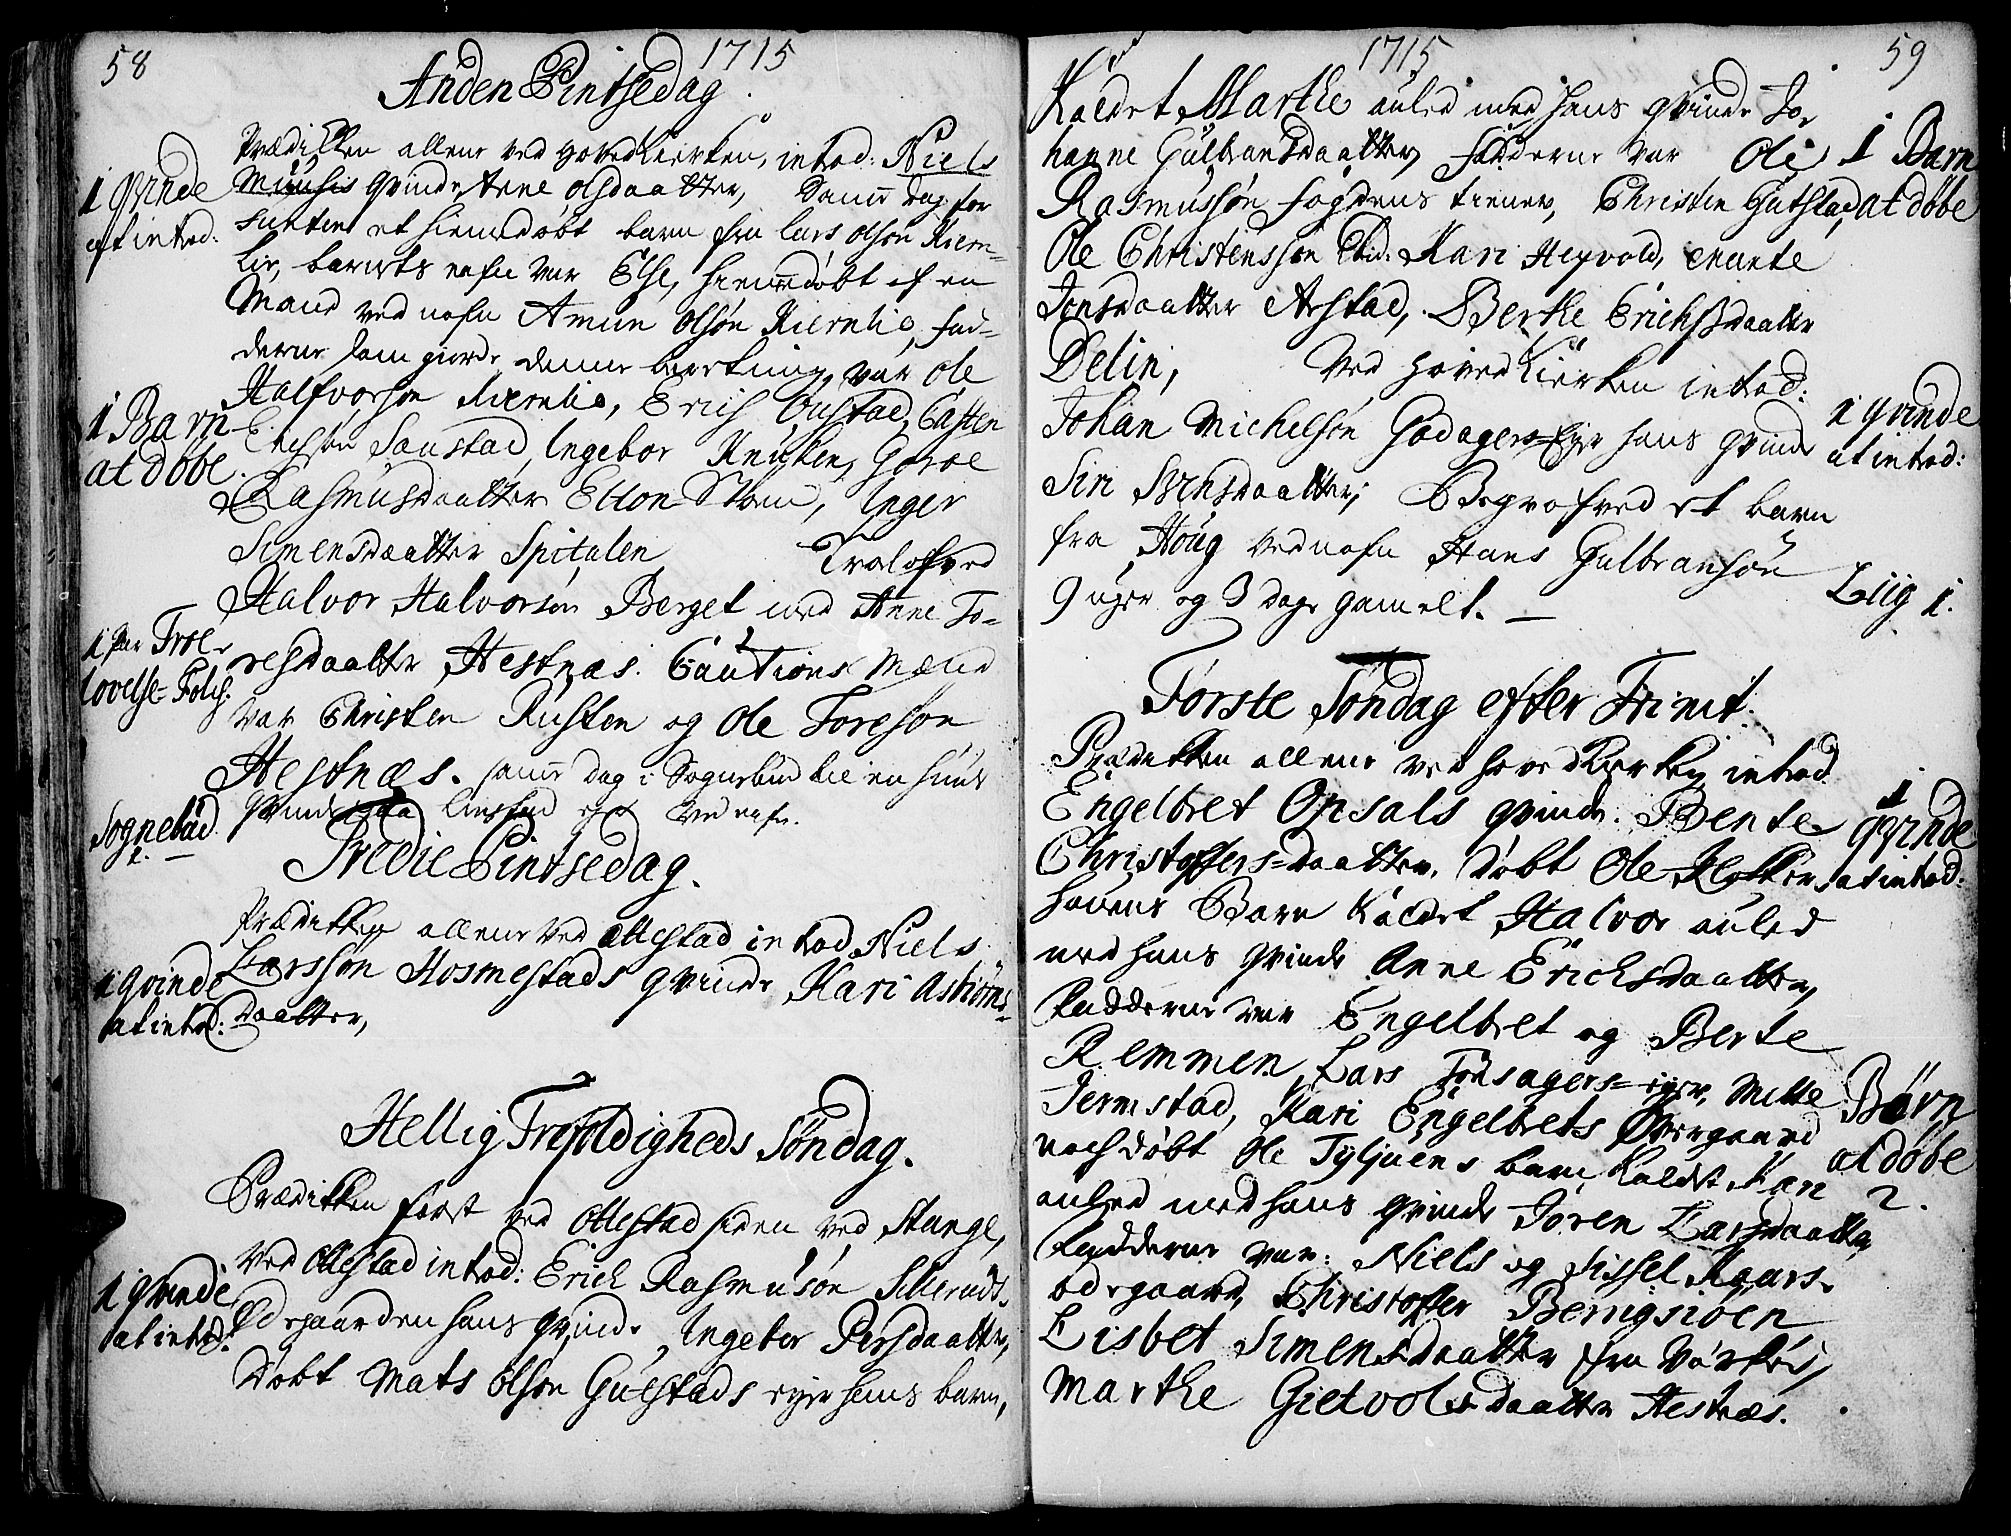 58
1715
Anden Pintsedag.
Prædikken allene ved hovedKierken, introd: Niels
Muusis qvinde Anne Olsdaatter, Samme dag for
et hiemedøbt barn fra Lars Olsøn Kiern=
lie, barnets nafn var Else, hiemedøbt af en
Mand ved nafn Amun Olsøn Kiernlie, fad=
derne som giorde denne var Ole
Halfvorsøn Kiernlie, Erich Gustad,
Erichsøn Saustad, Ingebor Knuken, Goroe
Rasmusdaatter Etton Steen, Inger
Simensdaatter Spitalen Trolofved
Halvor Halvorsøn Berget med Anne To=
resdaatter Hestnæs. Cautions Mænd
var Christen Rusten og Ole Toresøn
Hestnæs. samme dag i Sognebud til en huus
qvinde paa ved nafn.
1 qvinde
at introd:
1 Barn
at døbe.
1 par Troe=
lovelse=Folch.
Sognebud
1.
Tredie Pintsedag.
Prædikken allene ved Ottestad introd. Niels
Larssøn Hosmestads qvinde Kari Asbiørns=
daatter,
1 qvinde
at introd:
Hellig Trefoldigheds Søndag.
Prædikken først ved Ottestad siden ved Stange,
ved Ottestad introd: Erich Rasmusøn
Ødegaarden hans qvinde, Ingebor Persdaatter,
Døbt Mats Olsøn Guestads eyer hans barn,
1 qvinde
at introd:
1715
59
Kaldet Marthe auled med hans qvinde Jo=
hanne Gulbransdaatter, Fadderne var Ole
Rasmussøn fogdens tiener, Christen Gutstad,
Ole Christenssøn ibid. Kari Hegvold, Marite
Jonsdaatter Arstad, Berthe Erichsdaatter
Delin, Ved HovedKierken introd:
Johan Michelsøn Godagers=Eyr hans qvinde
Siri Svensdaatter; Begrofved et barn
fra Houg ved nafn Hans Gulbransøn
9 uger og 3 dage gamelt. —
1 Barn
at døbe
1 qvinde
at introd:
Liig 1.
Første Søndag efter Trinit:
Prædikken allene ved hovedKierken, introd.
Engelbret Opsals qvinde. Bente
Christoffers=daatter. Døbt Ole Klokker=
hauens Barn Kaldet Halvor auled
med hans qvinde Anne Erichsdaatter,
Fadderne var Engelbret og Berte
Remmen, Lars Fodsagers=eyer, Mette
Jermstad, Kari Engelbrets Øvergaard
noch døbt Ole Tyljuens barn, kaldet Kari
auled med hans qvinde Joren Larsdaatter,
Fadderne var: Niels og Sissel Agaars=
ødegaard, Christoffer Benigsioen
Lisbet Simensdaatter fra
Marthe Gietvolsdaatter Hestnæs.
1
qvinde
at introd:
Børn
at døbe
2.